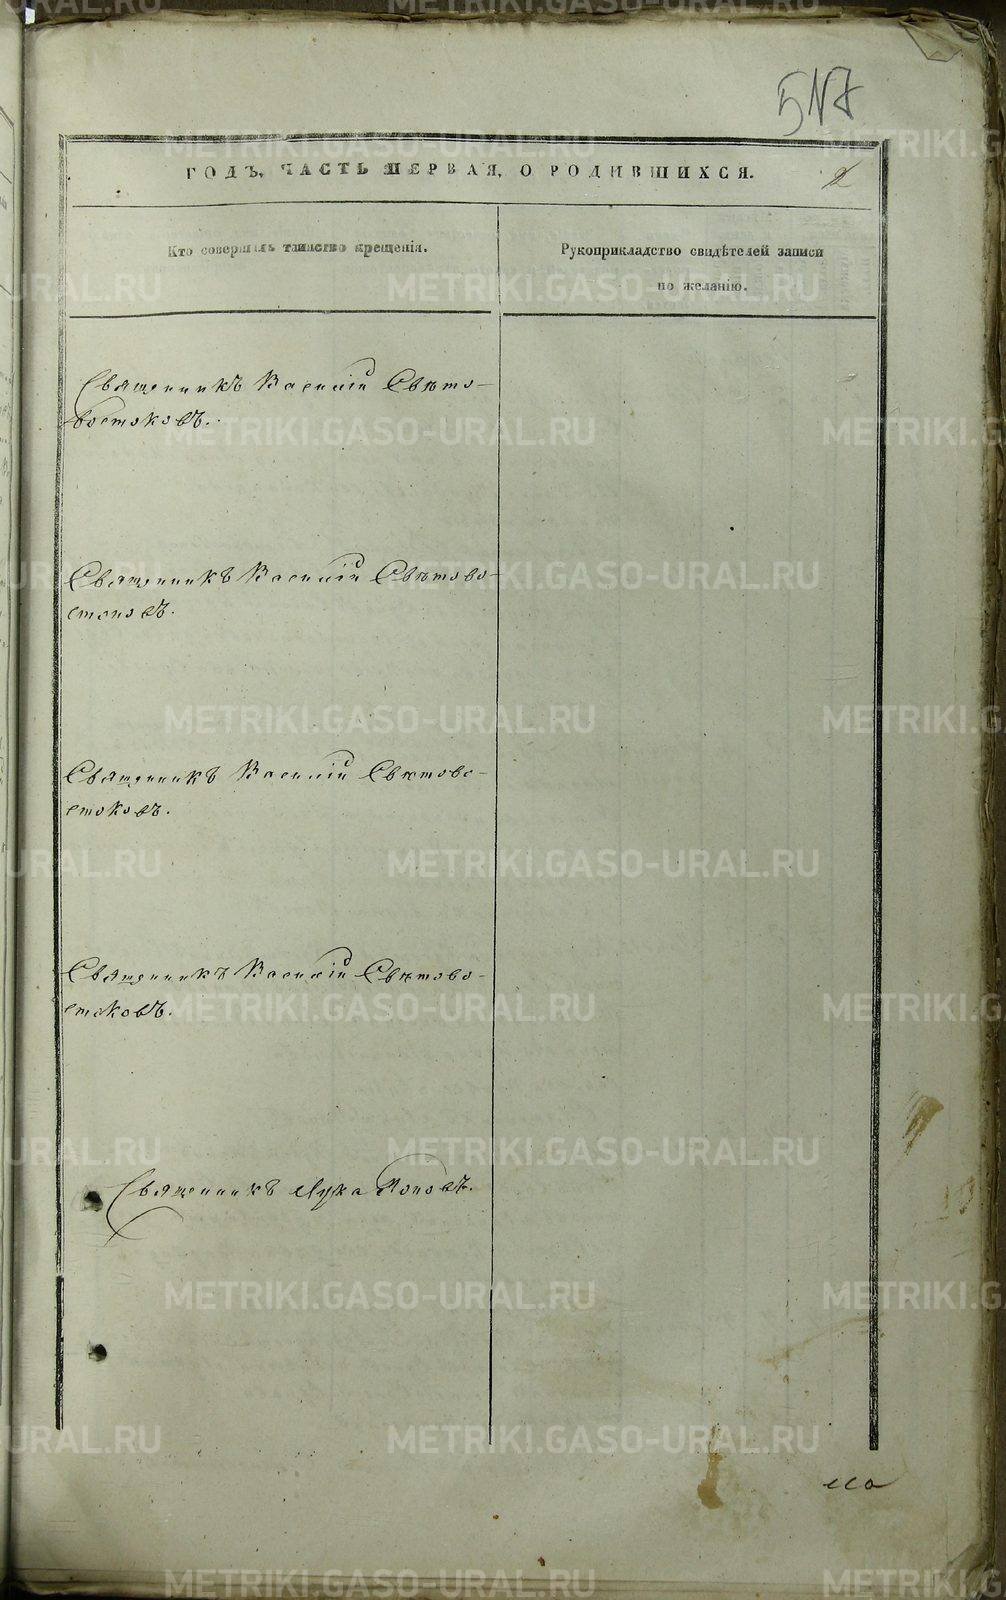 517
ГОДЪ, ЧАСТЬ ПЕРВАЯ, О РОДИВШИХСЯ.
2
Кто совершалъ таинство крещенія.
Рукоприкладство свидѣтелей записи
по желанію.
Священникъ Василій Свѣто-
востоковъ.
Священникъ Василій Свѣтово-
стоковъ.
Священникъ Василій Свѣтово-
стоковъ.
Священникъ Василій Свѣтово-
стоковъ.
Священникъ Лука Поповъ.
METRIKI.GASO-URAL.RU